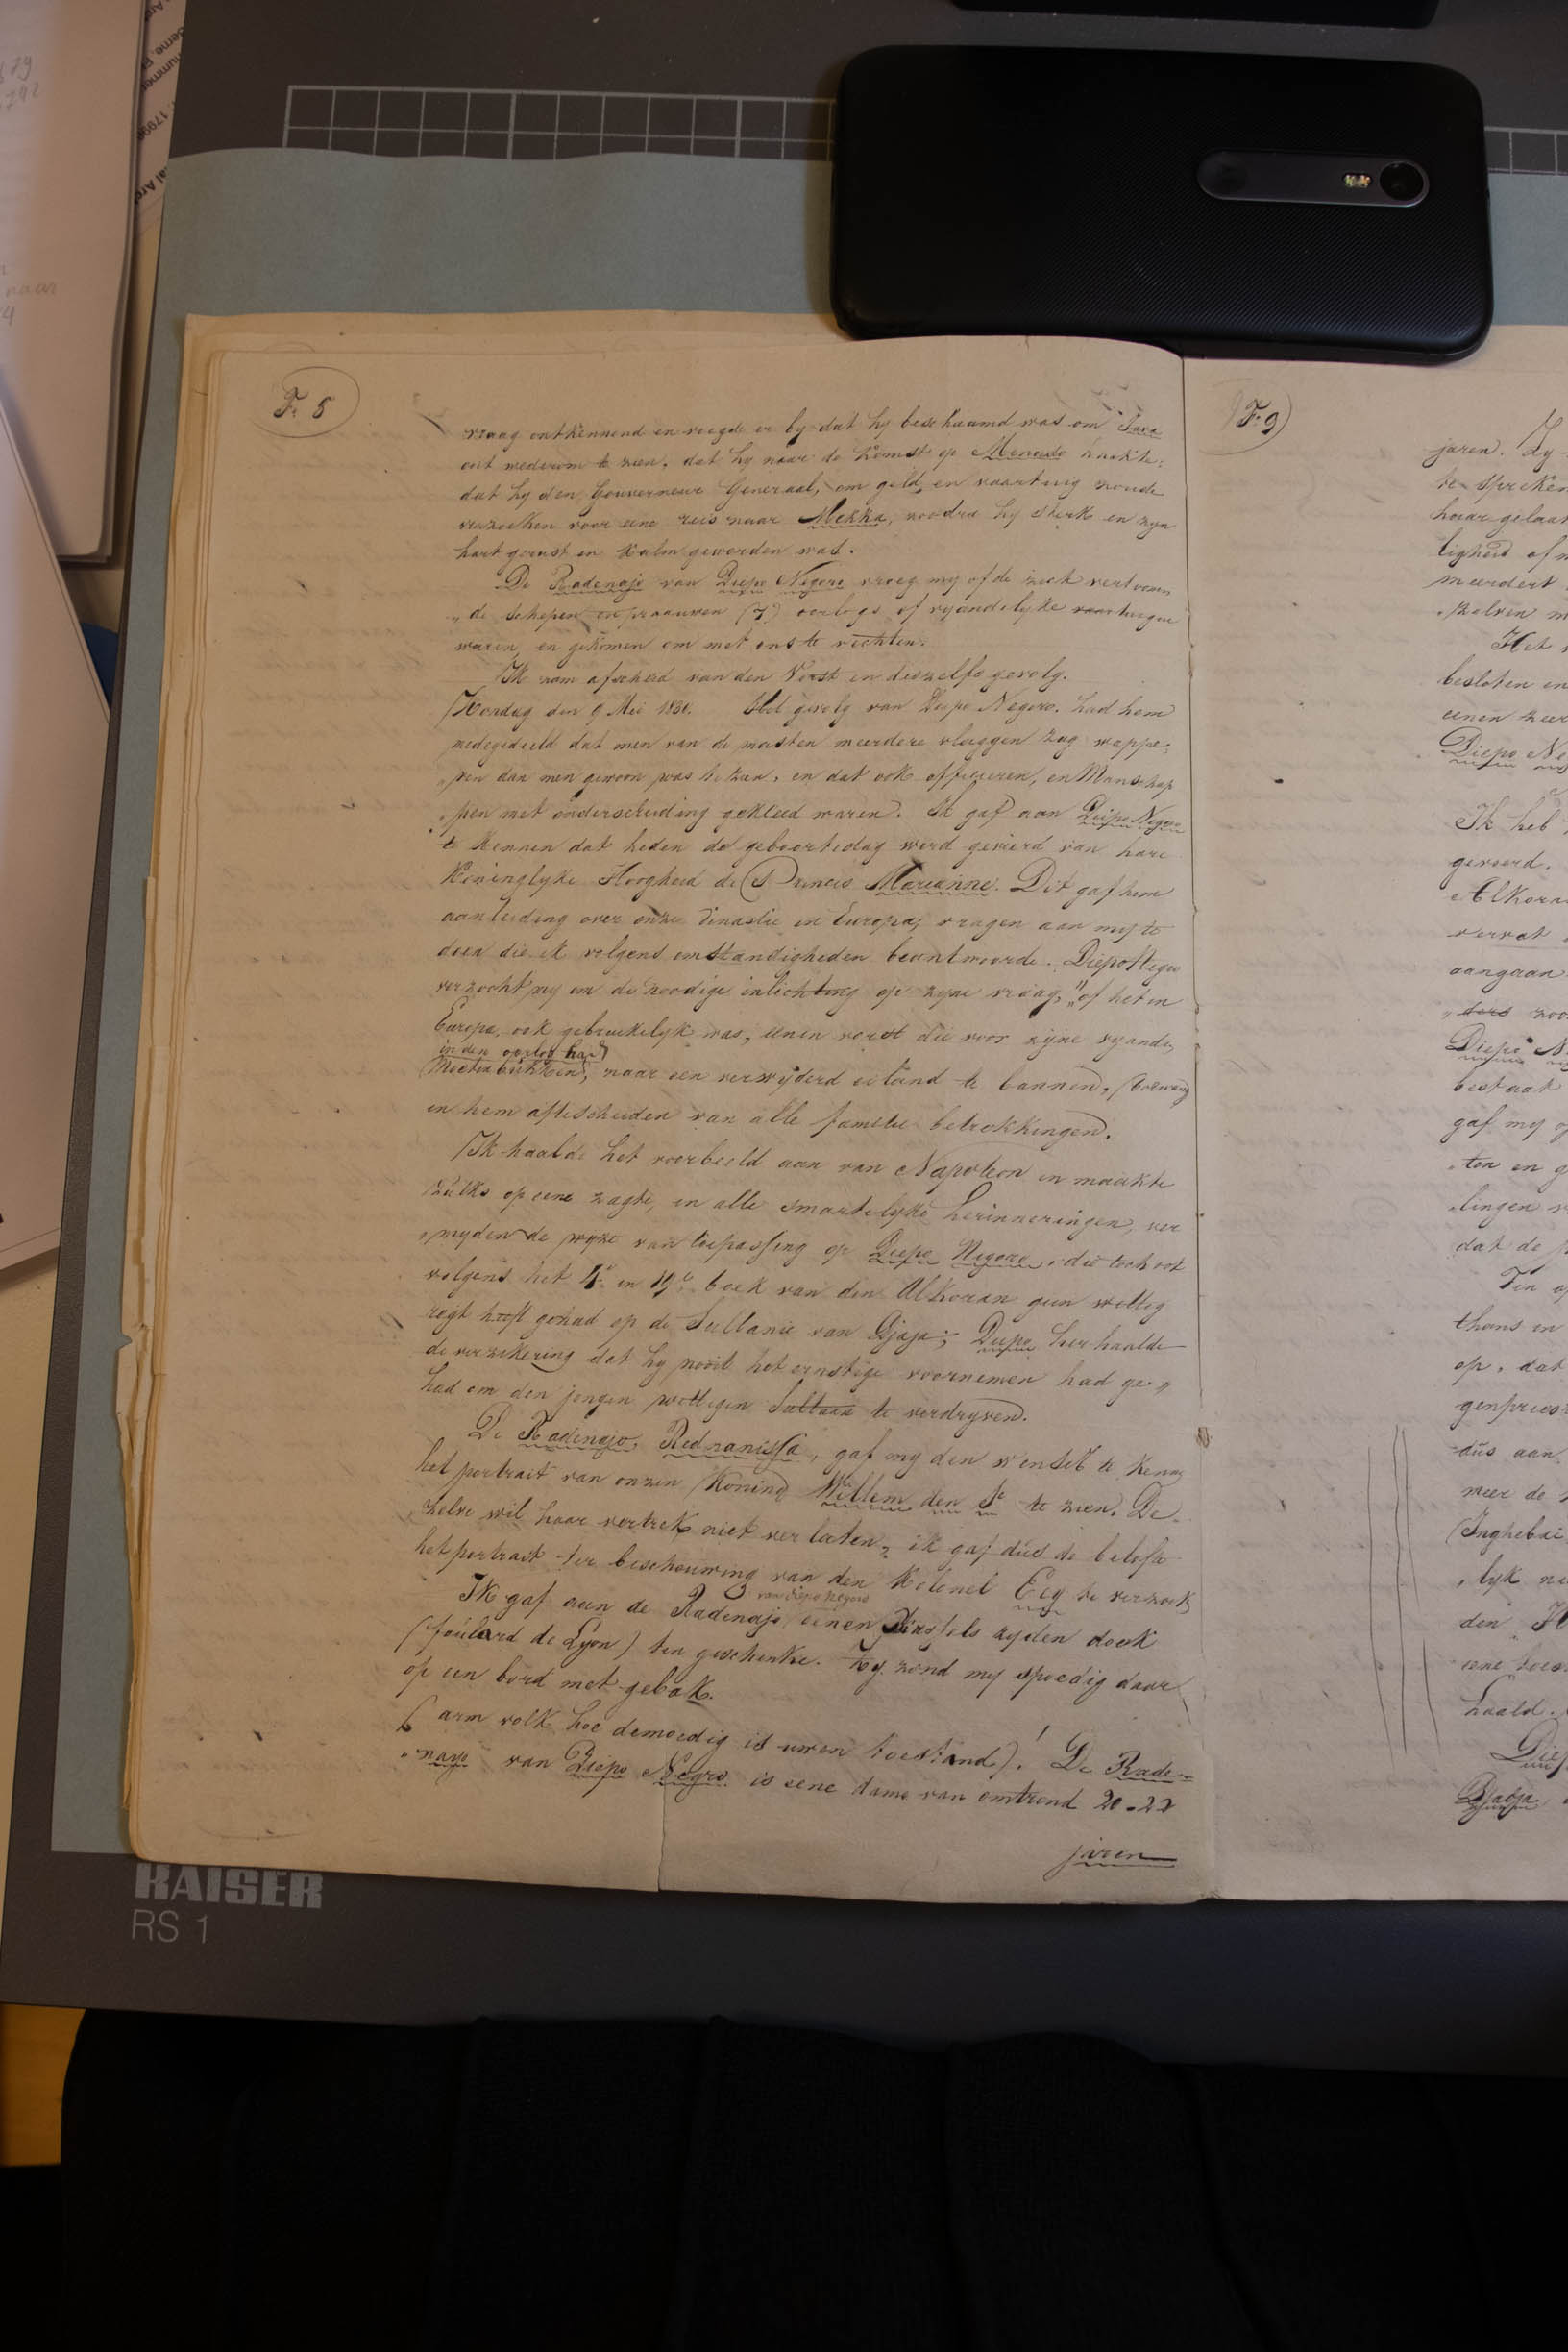 F. 8
vraag ontkennend en voegde er by dat hy beschaamd was om Java
ooit wederom te zien, dat hy naar de komst op Menado haakte;
dat hy den Gouverneur Generaal, om geld, en vaartuig zoude
verzoeken voor eene reis naar Mekka, zoodra hy sterk en zyn
hart gerust en kalm geworden was.
De Radenajo van Diepo Negoro vroeg my of de zich vertoonen
„de schepen en praauwen (7) oorlogs of vyandelyke vaartuigen
waren, en gekomen om met ons te vechten.
Ik nam afscheid van den Vorst en deszelfs gevolg.
Zondag den 9 Mei 1830. Het gevolg van Diepo Negoro had hem
medegedeeld dat men van de masten meerdere vlaggen zag wappe„
„ren dan men gewoon was te zien, en dat ook officieren, en Manschap
„pen met onderscheiding gekleed waren. Ik gaf aan Diepo Negoro
te kennen dat heden de geboortedag werd gevierd van hare
Koninglyke Hoogheid de Princes Marianne. Dit gaf hem
aanleiding over onze Dinastie in Europa, vragen aan my te
doen die ik volgens omstandigheden beantwoorde. Diepo Negoro
verzocht my om de noodige inlichting op zyne vraag, "of het in
Europa, ook gebruikelyk was, eenen vorst die voor zijne vyande,
in den oorlog had
Moeten bukken, naar een verwijderd eiland te bannen,
en hem afscheiden van alle familie betrekkingen.
Ik haalde het voorbeeld aan van Napoleon en maakte
zulks op eene zagte, en alle smartelyke herinneringen, ver
„myden de wyze van toepassing op Diepo Negoro, die toch ook
volgens het 4e en 19e boek van den AlKoran geen wettig
regt heeft gehad op de Sultanie van Djoja; Diepo herhaalde
de verzekering dat hy nooit het ernstige voornemen had ge„
had om den jongen wettigen Sultan te verdryven.
De Radenajo, Rednaningsa, gaf my den wensch te kenne
het portrait van onzen Koning Willem den 1e te zien. De„
zelve wil haar vertrek niet verlaten, ik gaf dus de belofte
het portrait ter beschouwing van den Kolonel Eeg te verzoek
van Diepo Negoro
Ik gaf aan de Radenajo eenen zyden doek
(foulard de Lyon) ten geschenke. Zy zond my spoedig daar
op een bord met gebak.
(arm volk hoe demoedig is uwen toestand)! De Rade=
„najo van Diepo Negoro is eene dame van omtrend 20-22
jaren
F. 9
jaren. Zy
te spreken
haar gelaat
ligheid of
meerdert
„zelven m
Het
besloten en
eenen zeer
Diepo Ne
Ik heb
gevoerd.
AlKoran
vervat
aangaan
„ders zoo
Diepo N
bestaat
gaf my o
ten en g
„lingen
dat de
Ten o
thans in
op, dat
genpries
dus aan
weer de
„lyk ne
den H
eene
haald.
Diep
KAISER
RS 1